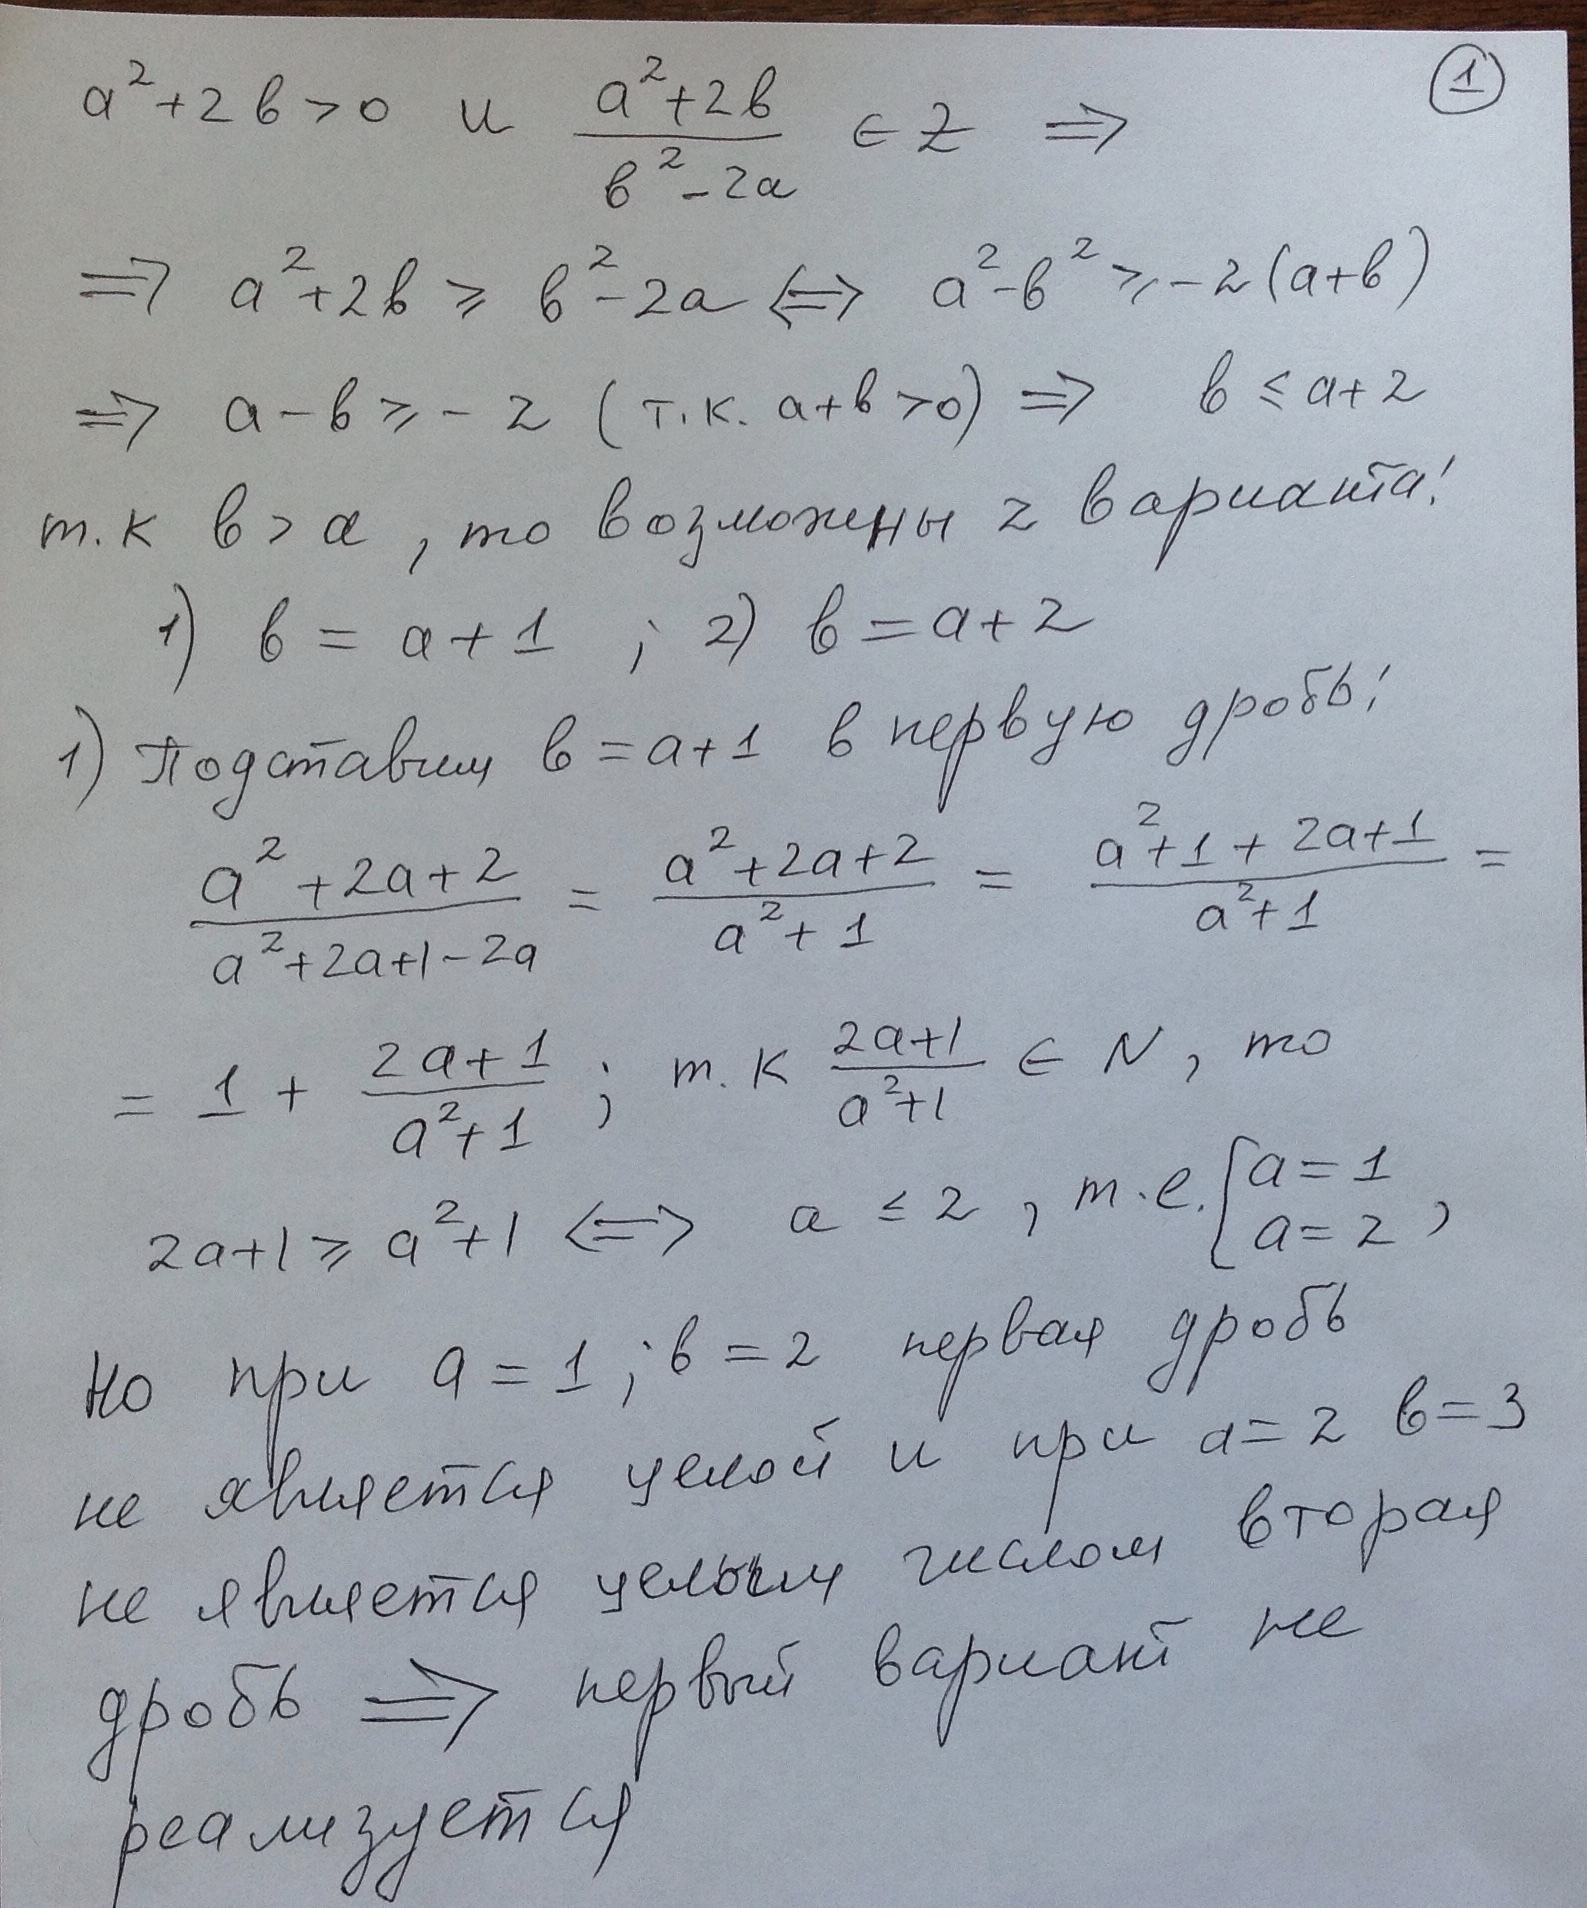 ①
a²+2b>0 и (a²+2b)/(b²-2a) ∈ Z ⇒
⇒ a²+2b ⩾ b²-2a ⇔ a²-b² ⩾ -2(a+b)
⇒ a-b ⩾ -2 (т.к. a+b>0) ⇒ b ≤ a+2
т.к b>a, то возможны 2 варианта:
1) b = a+1 ; 2) b = a+2
1) Подставим b=a+1 в первую дробь:
(a²+2a+2)/(a²+2a+1-2a) = (a²+2a+2)/(a²+1) = (a²+1+2a+1)/(a²+1) =
= 1 + (2a+1)/(a²+1) ; т.к (2a+1)/(a²+1) ∈ N, то
2a+1 ⩾ a²+1 ⇔ a ≤ 2, т.е. [a=1 a=2,
Но при a=1; b=2 первая дробь
не является целой и при a=2 b=3
не является целым числом вторая
дробь ⇒ первый вариант не
реализуется